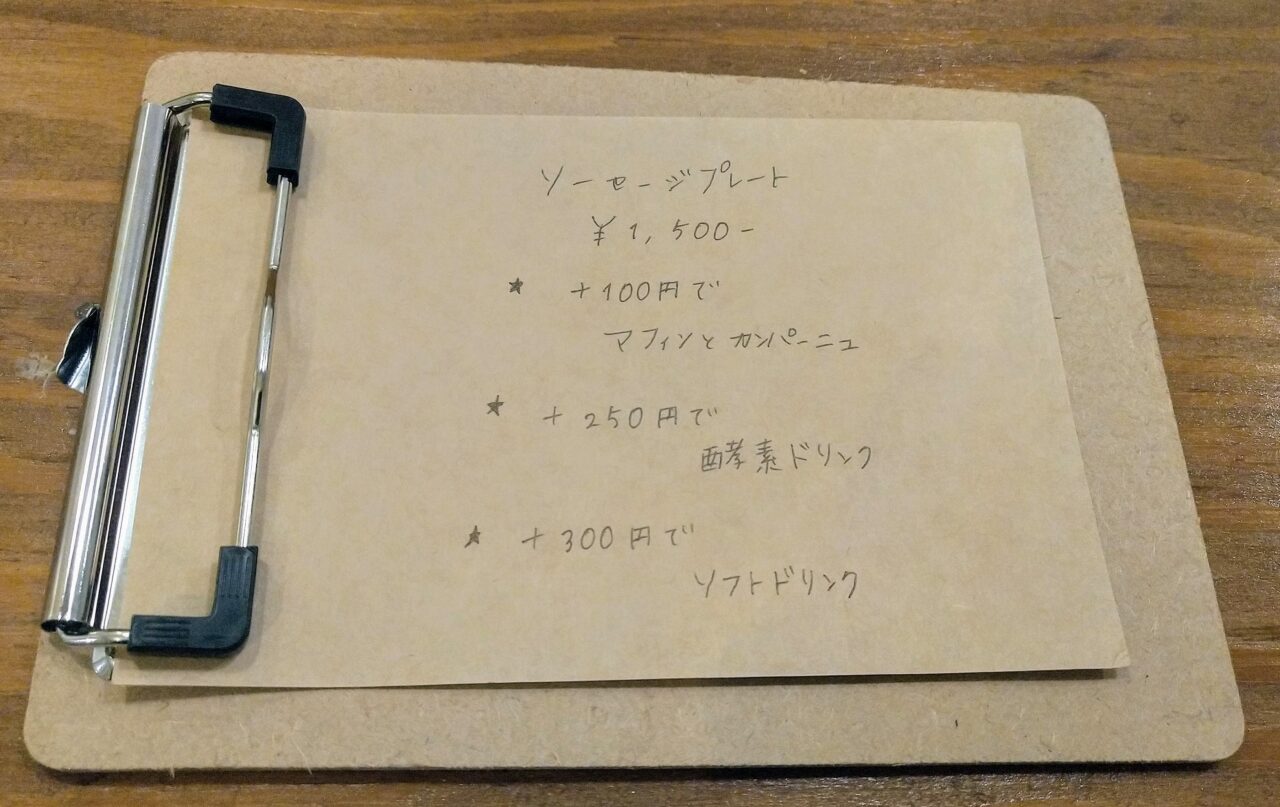 ソーセージプレート
¥1,500-
★ +100円で
マフィンとカンパーニュ
★ +250円で
酵素ドリンク
★ +300円で
ソフトドリンク